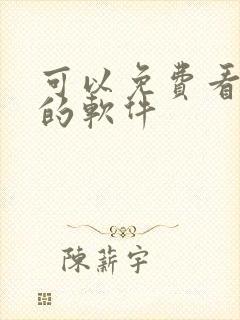 可以免費看
的軟件
陳薪宇